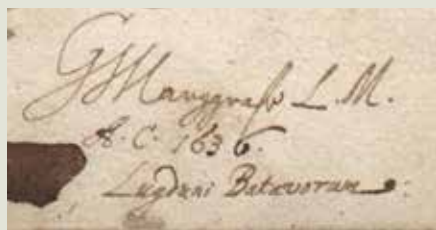 GMarggrafe L. M.
A. C. 1636.
Lugduni Batavorum